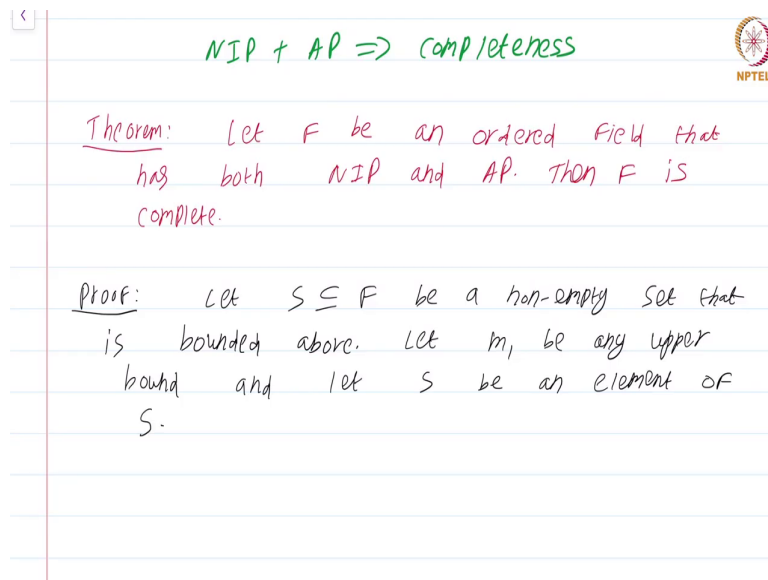 NIP + AP => completeness
NPTEL
Theorem: Let F be an ordered field that
has both NIP and AP. Then F is
complete.
Proof: Let S ⊆ F be a non-empty set that
is bounded above. Let m₁ be any upper
bound and let s be an element of
S.